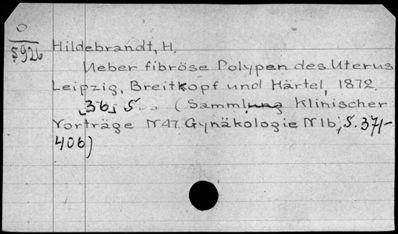 O
5926
Hildebrandt, H.
Ueber fibröse Polypen des Uterus
Leipzig, Breitkopf und Härtel, 1872.
[36] S. (Sammlung Klinischer
Vorträge N47. Gynäkologie N16; S. 371-
406)